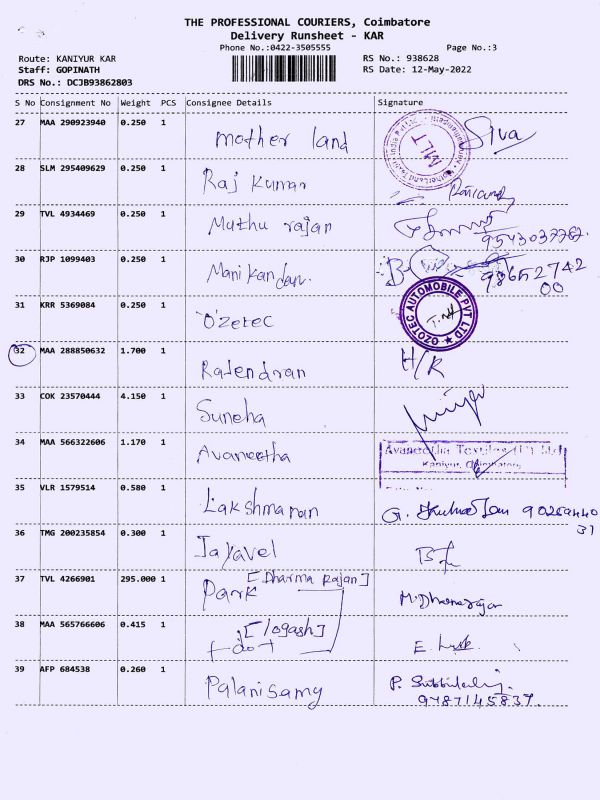 THE PROFESSIONAL COURIERS, Coimbatore
Delivery Runsheet - KAR
Phone No.:0422-3505555 Page No.:3
Route: KANIYUR KAR RS No.: 938628
Staff: GOPINATH RS Date: 12-May-2022
DRS No.: DCJB93862803
S No Consignment No Weight PCS Consignee Details Signature
27 MAA 290923940 0.250 1 mother land MLT Siva
28 SLM 295409629 0.250 1 Raj Kumar
29 TVL 4934469 0.250 1 Muthu rajan 9543037762.
30 RJP 1099403 0.250 1 Manikandan. 98652742
00
31 KRR 5369084 0.250 1 O'zetec OZOTEC AUTOMOBILE PVT LTD
32 MAA 288850632 1.700 1 Rajendran H/R
33 COK 23570444 4.150 1 Suneha
34 MAA 566322606 1.170 1 Avaneetha Avaneetha Textiles (P) Ltd
Kaniyur, Coimbatore
35 VLR 1579514 0.580 1 Lakshmanan G.
31
36 TMG 200235854 0.300 1 Jayavel
37 TVL 4266901 295.000 1 Park [Dharma Rajan] M.Dharmarajan
38 MAA 565766606 0.415 1 f-dot [logash] E.
39 AFP 684538 0.260 1 Palanisamy P.
9787145837.